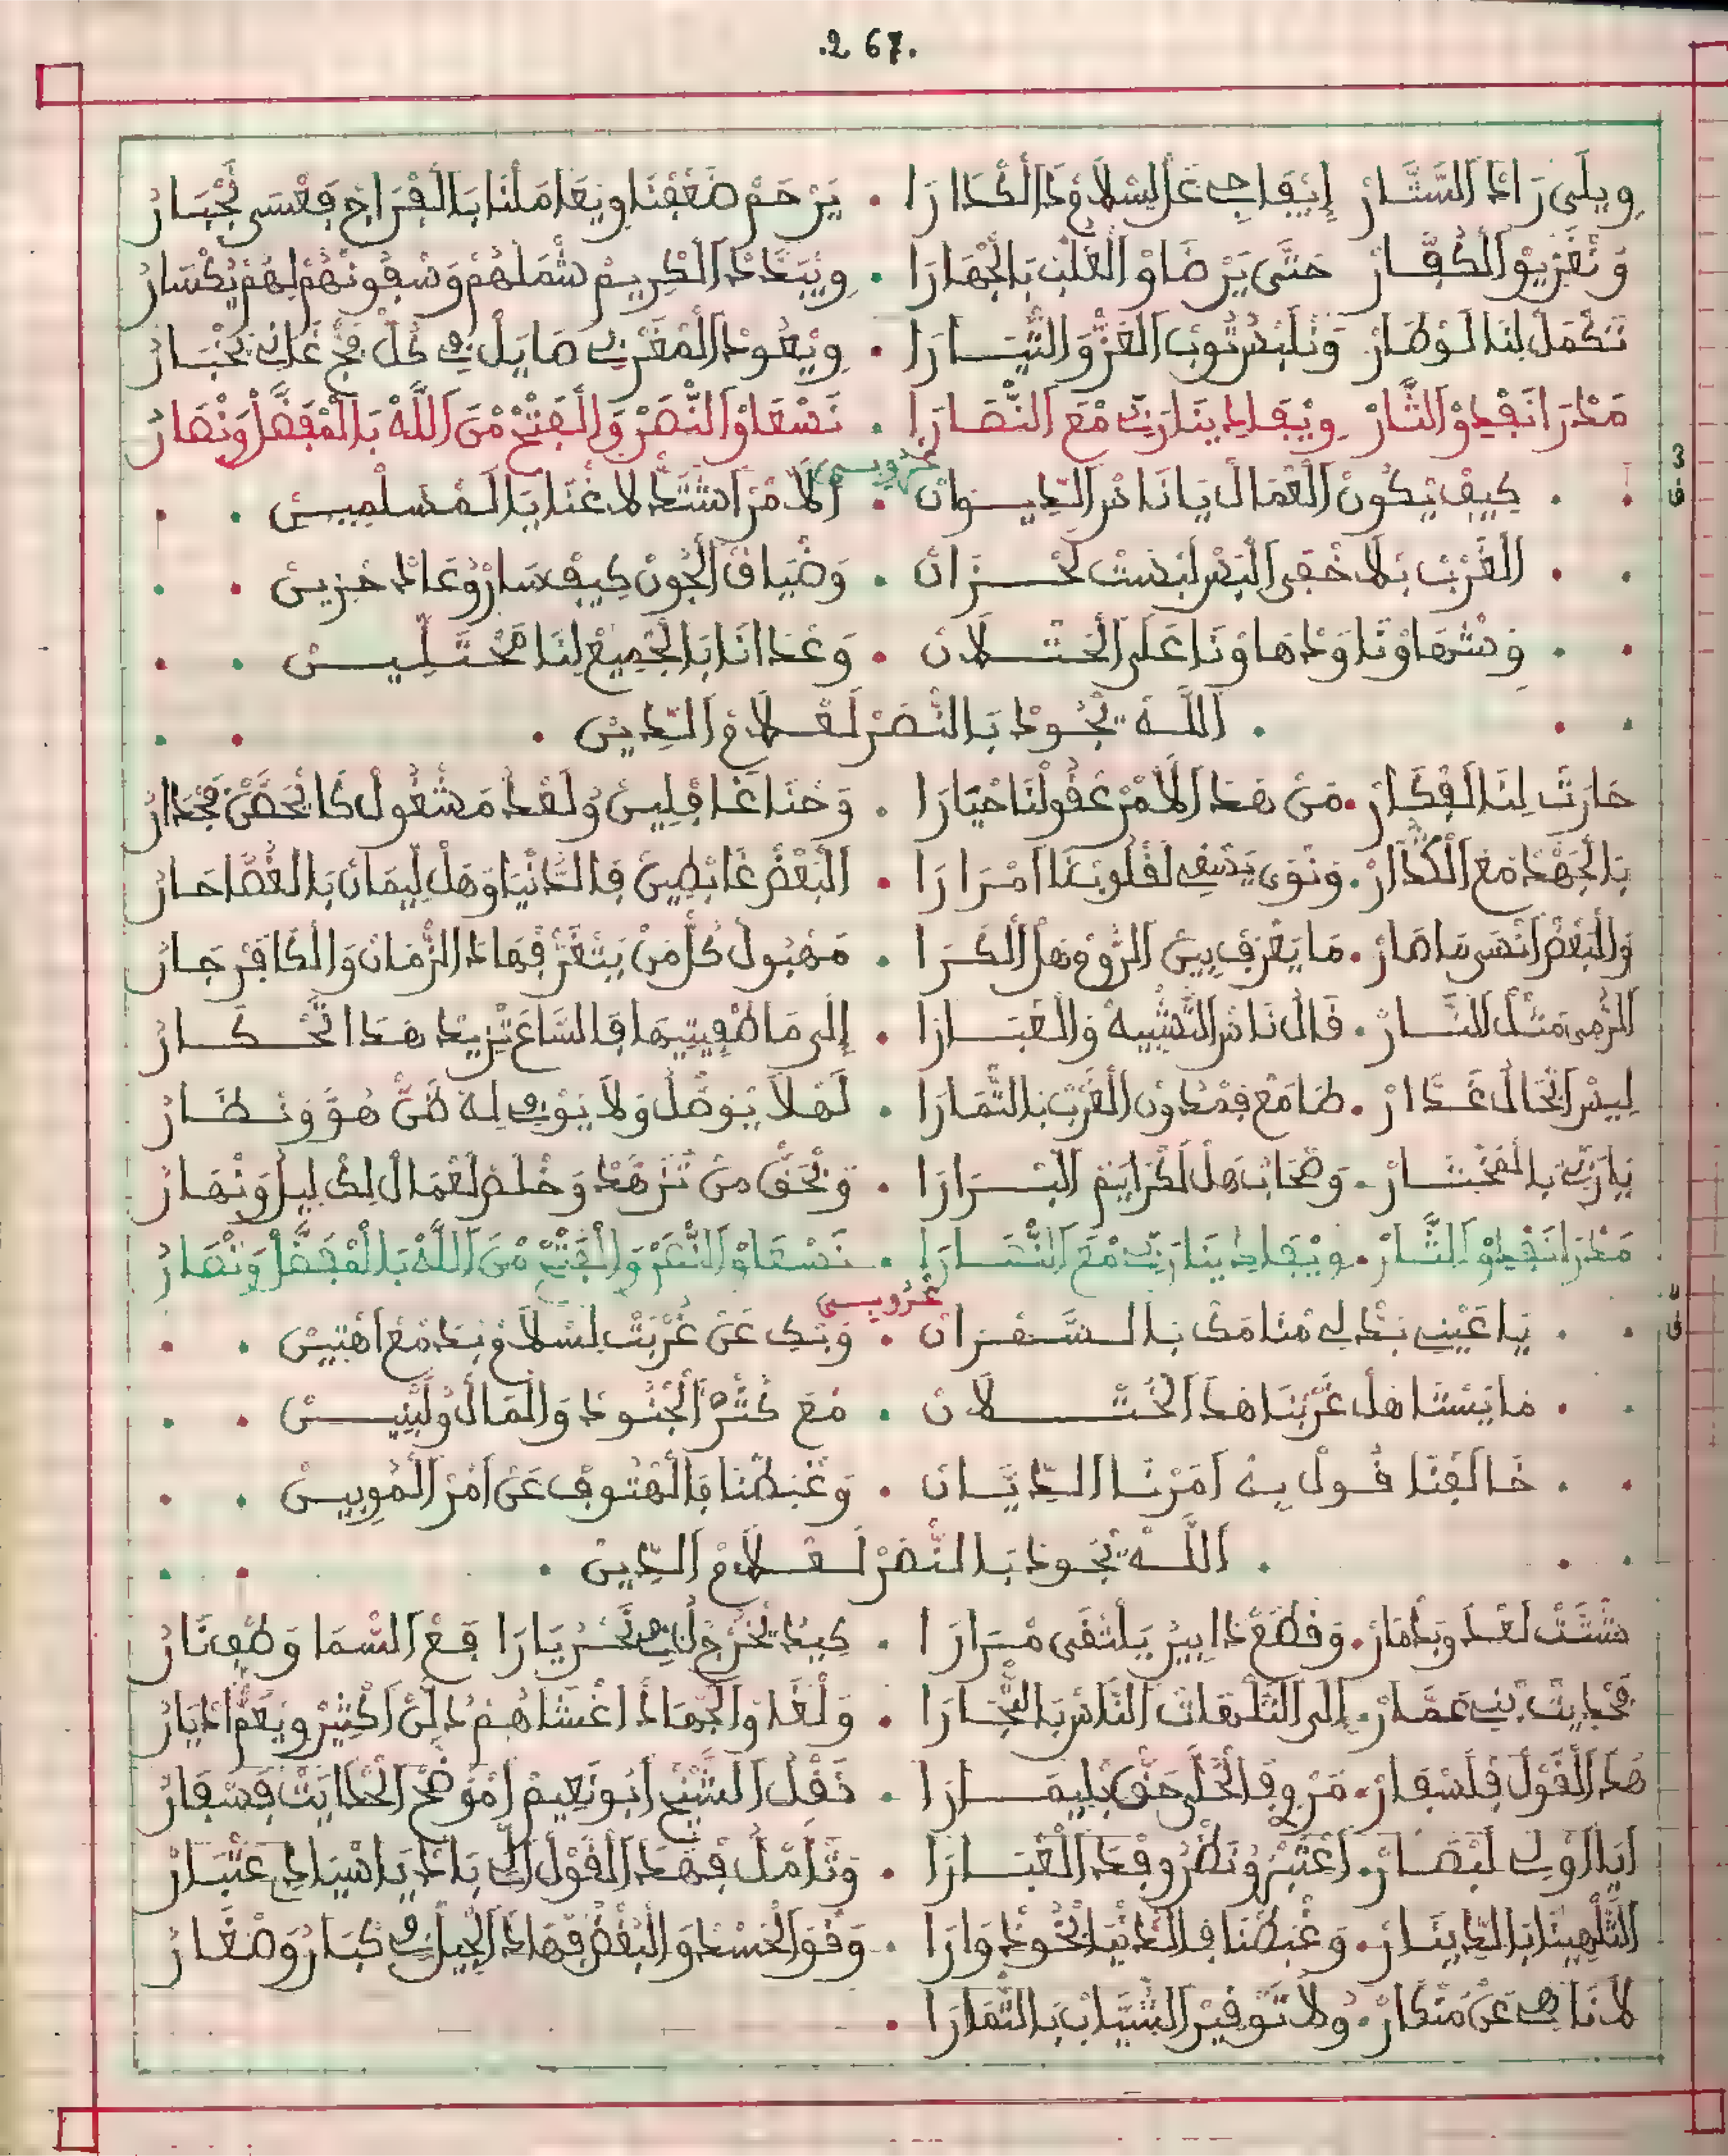 .267.
ويلى راد الستار إيفاجي عن السلام ذ الكدارا . يرحم ضعفنا ويعاملنا بالفراج فعسى نجبار
ونغزيو الكفار حتى يرضاو الغلب بالجهارا . ويبدد الكريم شملهم وسفونهم لهم يكسار
تكمل لنا لوطار ونلبس ثوب العز والتيارا . ويعود المغربي صايل في كل فج عاني يخبار
مدرا نفديو الثار ويفادينا ربي مع النصارا . نسعاو النصر والفتح من الله بالمفضل ونهار
عروبي
كيف يكون العمال يا ناس الديوان . الامر اشتد لا غنا يا المسلمين
الغرب بلا خفى البس لبست لحزان . وضياف الجون كيف سار وعاد حزين
وشهاونا ودهاونا على الختلان . وعدانا بالجميع لنا محتلين
. الله يجود بالنصر لعلام الدين .
حارت لنا لفكار . من هذ الامر عقولنا حيارا . وحنا غافلين ولعد مشغول كا يحصن فجدار
بالجهد مع الكدار . ونوى يشفي لقلوبنا امرارا . البعض غابطين فالدنيا وهل ليمان بالغصا حار
والبعض انسى ما صار . ما يعرف بين الروم هل الكرا . مهبول كل من يتغر فهاذ الزمان والكافر جار
الرومى مثل النار . قال ناس التشبيه والعبارا . إلى ما طفيتيها فالساع تزيد هذا تحكار
ليس الحال غدار . طامع فمدون الغرب بالتمارا . لهلا يوصل ولا يوفي له ظن هو ونظار
يا ربي بالمختار . وصحاب هل لكرايم البرارا . ونحق من تزهد وخلص لعمال لك ليل ونهار
مدرا نفديو الثار . ويفادينا ربي مع النصارا . نسعاو النصر والفتح من الله بالمفضل ونهار
عروبي
يا عيني بدلي منامك بالسهران . وبكي عن غربت لسلام بدمع اهتين
ما يستاهل غربنا هذ الختلان . مع كثر الجنود والمال ولبنين
خالفنا قول به امرنا الديان . وغبطنا فالهتوف عن امر الموبين
. الله يجود بالنصر لعلام الدين .
شتت لعد وبدمار . وقطع دابير يلتقى مرارا . كيد يخرج لي في نحريارا فع السما وطف نار
فحديث بني عمار . إلى التلهات الناس بالتجارا . ولغاو الجهاد اغشاهم دل اكثير ويعم اديار
هذ القول فلسفار . مروق الحلى حق بليمارا . نقل الشيخ ابو نعيم اموضح الحدايث فسفار
ايا اولي لبصار . اعتبرو ونظرو فهذ العبارا . وتامل فهذ القول اللي باد يا سيادي عتبار
التلهينا بالدينار . وغبطنا فالدنيا لخوذوارا . وقو الحسد والبغض فهاذ الجيل في كبار وصغار
لا ناهي عن منكار . ولا توقير الشياب بالتمارا .